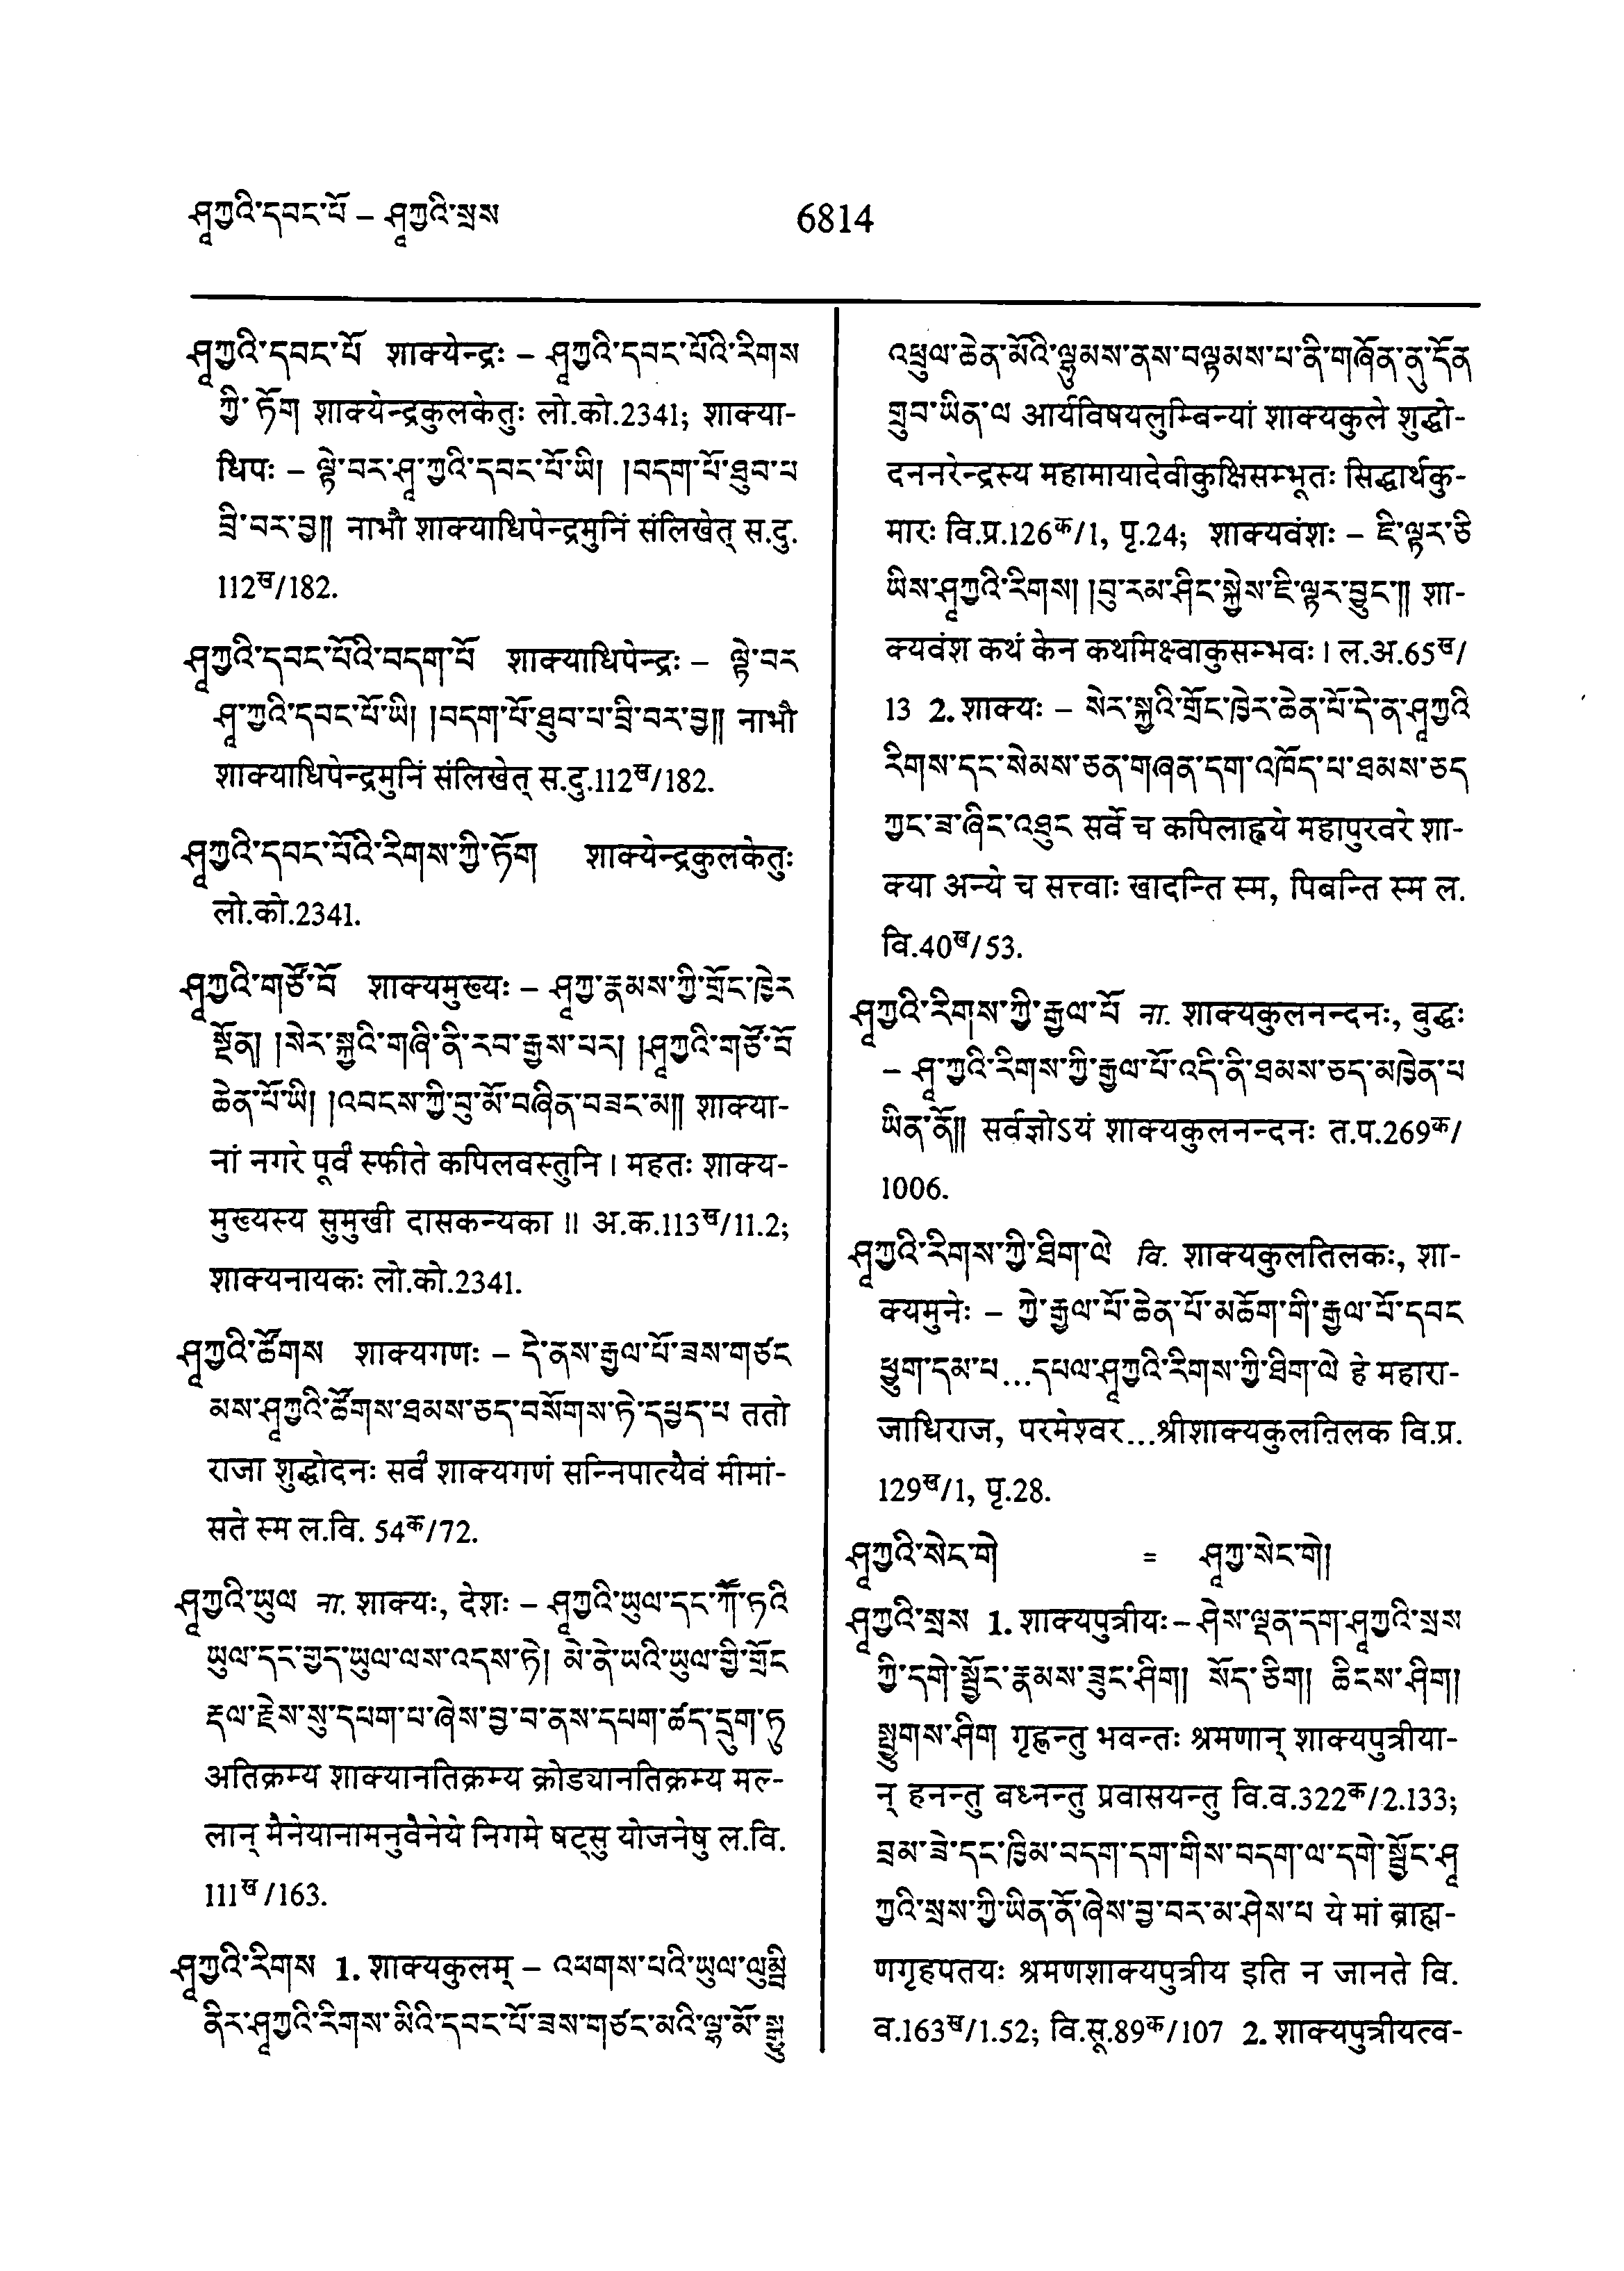 ཤཱཀྱའི་དབང་པོ – ཤཱཀྱའི་སྲས
6814
ཤཱཀྱའི་དབང་པོ शाक्येन्द्रः – ཤཱཀྱའི་དབང་པོའི་རིགས
ཀྱི་ཏོག शाक्येन्द्रकुलकेतुः लो.को.2341; शाक्या-
धिपः – ལྟེ་བར་ཤཱ་ཀྱའི་དབང་པོ་ཡི། །བདག་པོ་ཐུབ་པ
བྲི་བར་བྱ།། नाभौ शाक्याधिपेन्द्रमुनिं संलिखेत् स.दु.
112ख/182.
ཤཱཀྱའི་དབང་པོའི་བདག་པོ शाक्याधिपेन्द्रः – ལྟེ་བར
ཤཱ་ཀྱའི་དབང་པོ་ཡི། །བདག་པོ་ཐུབ་པ་བྲི་བར་བྱ།། नाभौ
शाक्याधिपेन्द्रमुनिं संलिखेत् स.दु.112ख/182.
ཤཱཀྱའི་དབང་པོའི་རིགས་ཀྱི་ཏོག शाक्येन्द्रकुलकेतुः
लो.को.2341.
ཤཱཀྱའི་གཙོ་བོ शाक्यमुख्यः – ཤཱཀྱ་རྣམས་ཀྱི་གྲོང་ཁྱེར
སྔོན། །སེར་སྐྱའི་གཞི་ནི་རབ་རྒྱས་པར། །ཤཱཀྱའི་གཙོ་བོ
ཆེན་པོ་ཡི། །འབངས་ཀྱི་བུ་མོ་བཞིན་བཟང་མ།། शाक्या-
नां नगरे पूर्वं स्फीते कपिलवस्तुनि । महतः शाक्य-
मुख्यस्य सुमुखी दासकन्यका ॥ अ.क.113ख/11.2;
शाक्यनायकः लो.को.2341.
ཤཱཀྱའི་ཚོགས शाक्यगणः – དེ་ནས་རྒྱལ་པོ་ཟས་གཙང
མས་ཤཱཀྱའི་ཚོགས་ཐམས་ཅད་བསོགས་ཏེ་དཔྱད་པ ततो
राजा शुद्धोदनः सर्वं शाक्यगणं सन्निपात्यैवं मीमां-
सते स्म ल.वि. 54क/72.
ཤཱཀྱའི་ཡུལ ना. शाक्यः, देशः – ཤཱཀྱའི་ཡུལ་དང་ཀྲོ་ཏའི
ཡུལ་དང་གྱད་ཡུལ་ལས་འདས་ཏེ། མེ་ནེ་ཡའི་ཡུལ་གྱི་གྲོང
རྡལ་རྗེས་སུ་དཔག་པ་ཞེས་བྱ་བ་ནས་དཔག་ཚད་དྲུག་ཏུ
अतिक्रम्य शाक्यानतिक्रम्य क्रोड्यानतिक्रम्य मल्-
लान् मैनेयानामनुवैनेये निगमे षट्सु योजनेषु ल.वि.
111ख/163.
ཤཱཀྱའི་རིགས 1. शाक्यकुलम् – འཕགས་པའི་ཡུལ་ལུམྦི
ནིར་ཤཱཀྱའི་རིགས་མིའི་དབང་པོ་ཟས་གཙང་མའི་ལྷ་མོ་སྒྱུ
འཕྲུལ་ཆེན་མོའི་ལྷུམས་ནས་བལྟམས་པ་ནི་གཞོན་ནུ་དོན
གྲུབ་ཡིན་ལ आर्यविषयलुम्बिन्यां शाक्यकुले शुद्धो-
दननरेन्द्रस्य महामायादेवीकुक्षिसम्भूतः सिद्धार्थकु-
मारः वि.प्र.126क/1, पृ.24; शाक्यवंशः – ཇི་ལྟར་ཅི
ཡིས་ཤཱཀྱའི་རིགས། །བུ་རམ་ཤིང་སྐྱེས་ཇི་ལྟར་བྱུང་།། शा-
क्यवंश कथं केन कथमिक्ष्वाकुसम्भवः । ल.अ.65ख/
13 2. शाक्यः – སེར་སྐྱའི་གྲོང་ཁྱེར་ཆེན་པོ་དེ་ན་ཤཱཀྱའི
རིགས་དང་སེམས་ཅན་གཞན་དག་འཁོད་པ་ཐམས་ཅད
ཀྱང་ཟ་ཞིང་འཐུང सर्वे च कपिलाह्वये महापुरवरे शा-
क्या अन्ये च सत्त्वाः खादन्ति स्म, पिबन्ति स्म ल.
वि.40ख/53.
ཤཱཀྱའི་རིགས་ཀྱི་རྒྱལ་པོ ना. शाक्यकुलनन्दनः, बुद्धः
– ཤཱ་ཀྱའི་རིགས་ཀྱི་རྒྱལ་པོ་འདི་ནི་ཐམས་ཅད་མཁྱེན་པ
ཡིན་ནོ།། सर्वज्ञोऽयं शाक्यकुलनन्दनः त.प.269क/
1006.
ཤཱཀྱའི་རིགས་ཀྱི་ཐིག་ལེ वि. शाक्यकुलतिलकः, शा-
क्यमुनेः – ཀྱེ་རྒྱལ་པོ་ཆེན་པོ་མཆོག་གི་རྒྱལ་པོ་དབང
ཕྱུག་དམ་པ...དཔལ་ཤཱཀྱའི་རིགས་ཀྱི་ཐིག་ལེ हे महारा-
जाधिराज, परमेश्वर...श्रीशाक्यकुलतिलक वि.प्र.
129ख/1, पृ.28.
ཤཱཀྱའི་སེང་གེ = ཤཱཀྱ་སེང་གེ།
ཤཱཀྱའི་སྲས 1. शाक्यपुत्रीयः – ཤེས་ལྡན་དག་ཤཱཀྱའི་སྲས
ཀྱི་དགེ་སྦྱོང་རྣམས་ཟུང་ཤིག། སོད་ཅིག། ཆིངས་ཤིག།
སྤྱུགས་ཤིག गृह्णन्तु भवन्तः श्रमणान् शाक्यपुत्रीया-
न् हनन्तु वध्नन्तु प्रवासयन्तु वि.व.322क/2.133;
བྲམ་ཟེ་དང་ཁྱིམ་བདག་དག་གིས་བདག་ལ་དགེ་སྦྱོང་ཤཱ
ཀྱའི་སྲས་ཀྱི་ཡིན་ནོ་ཞེས་བྱ་བར་མ་ཤེས་པ ये मां ब्राह्म-
णगृहपतयः श्रमणशाक्यपुत्रीय इति न जानते वि.
व.163ख/1.52; वि.सू.89क/107 2. शाक्यपुत्रीयत्व-